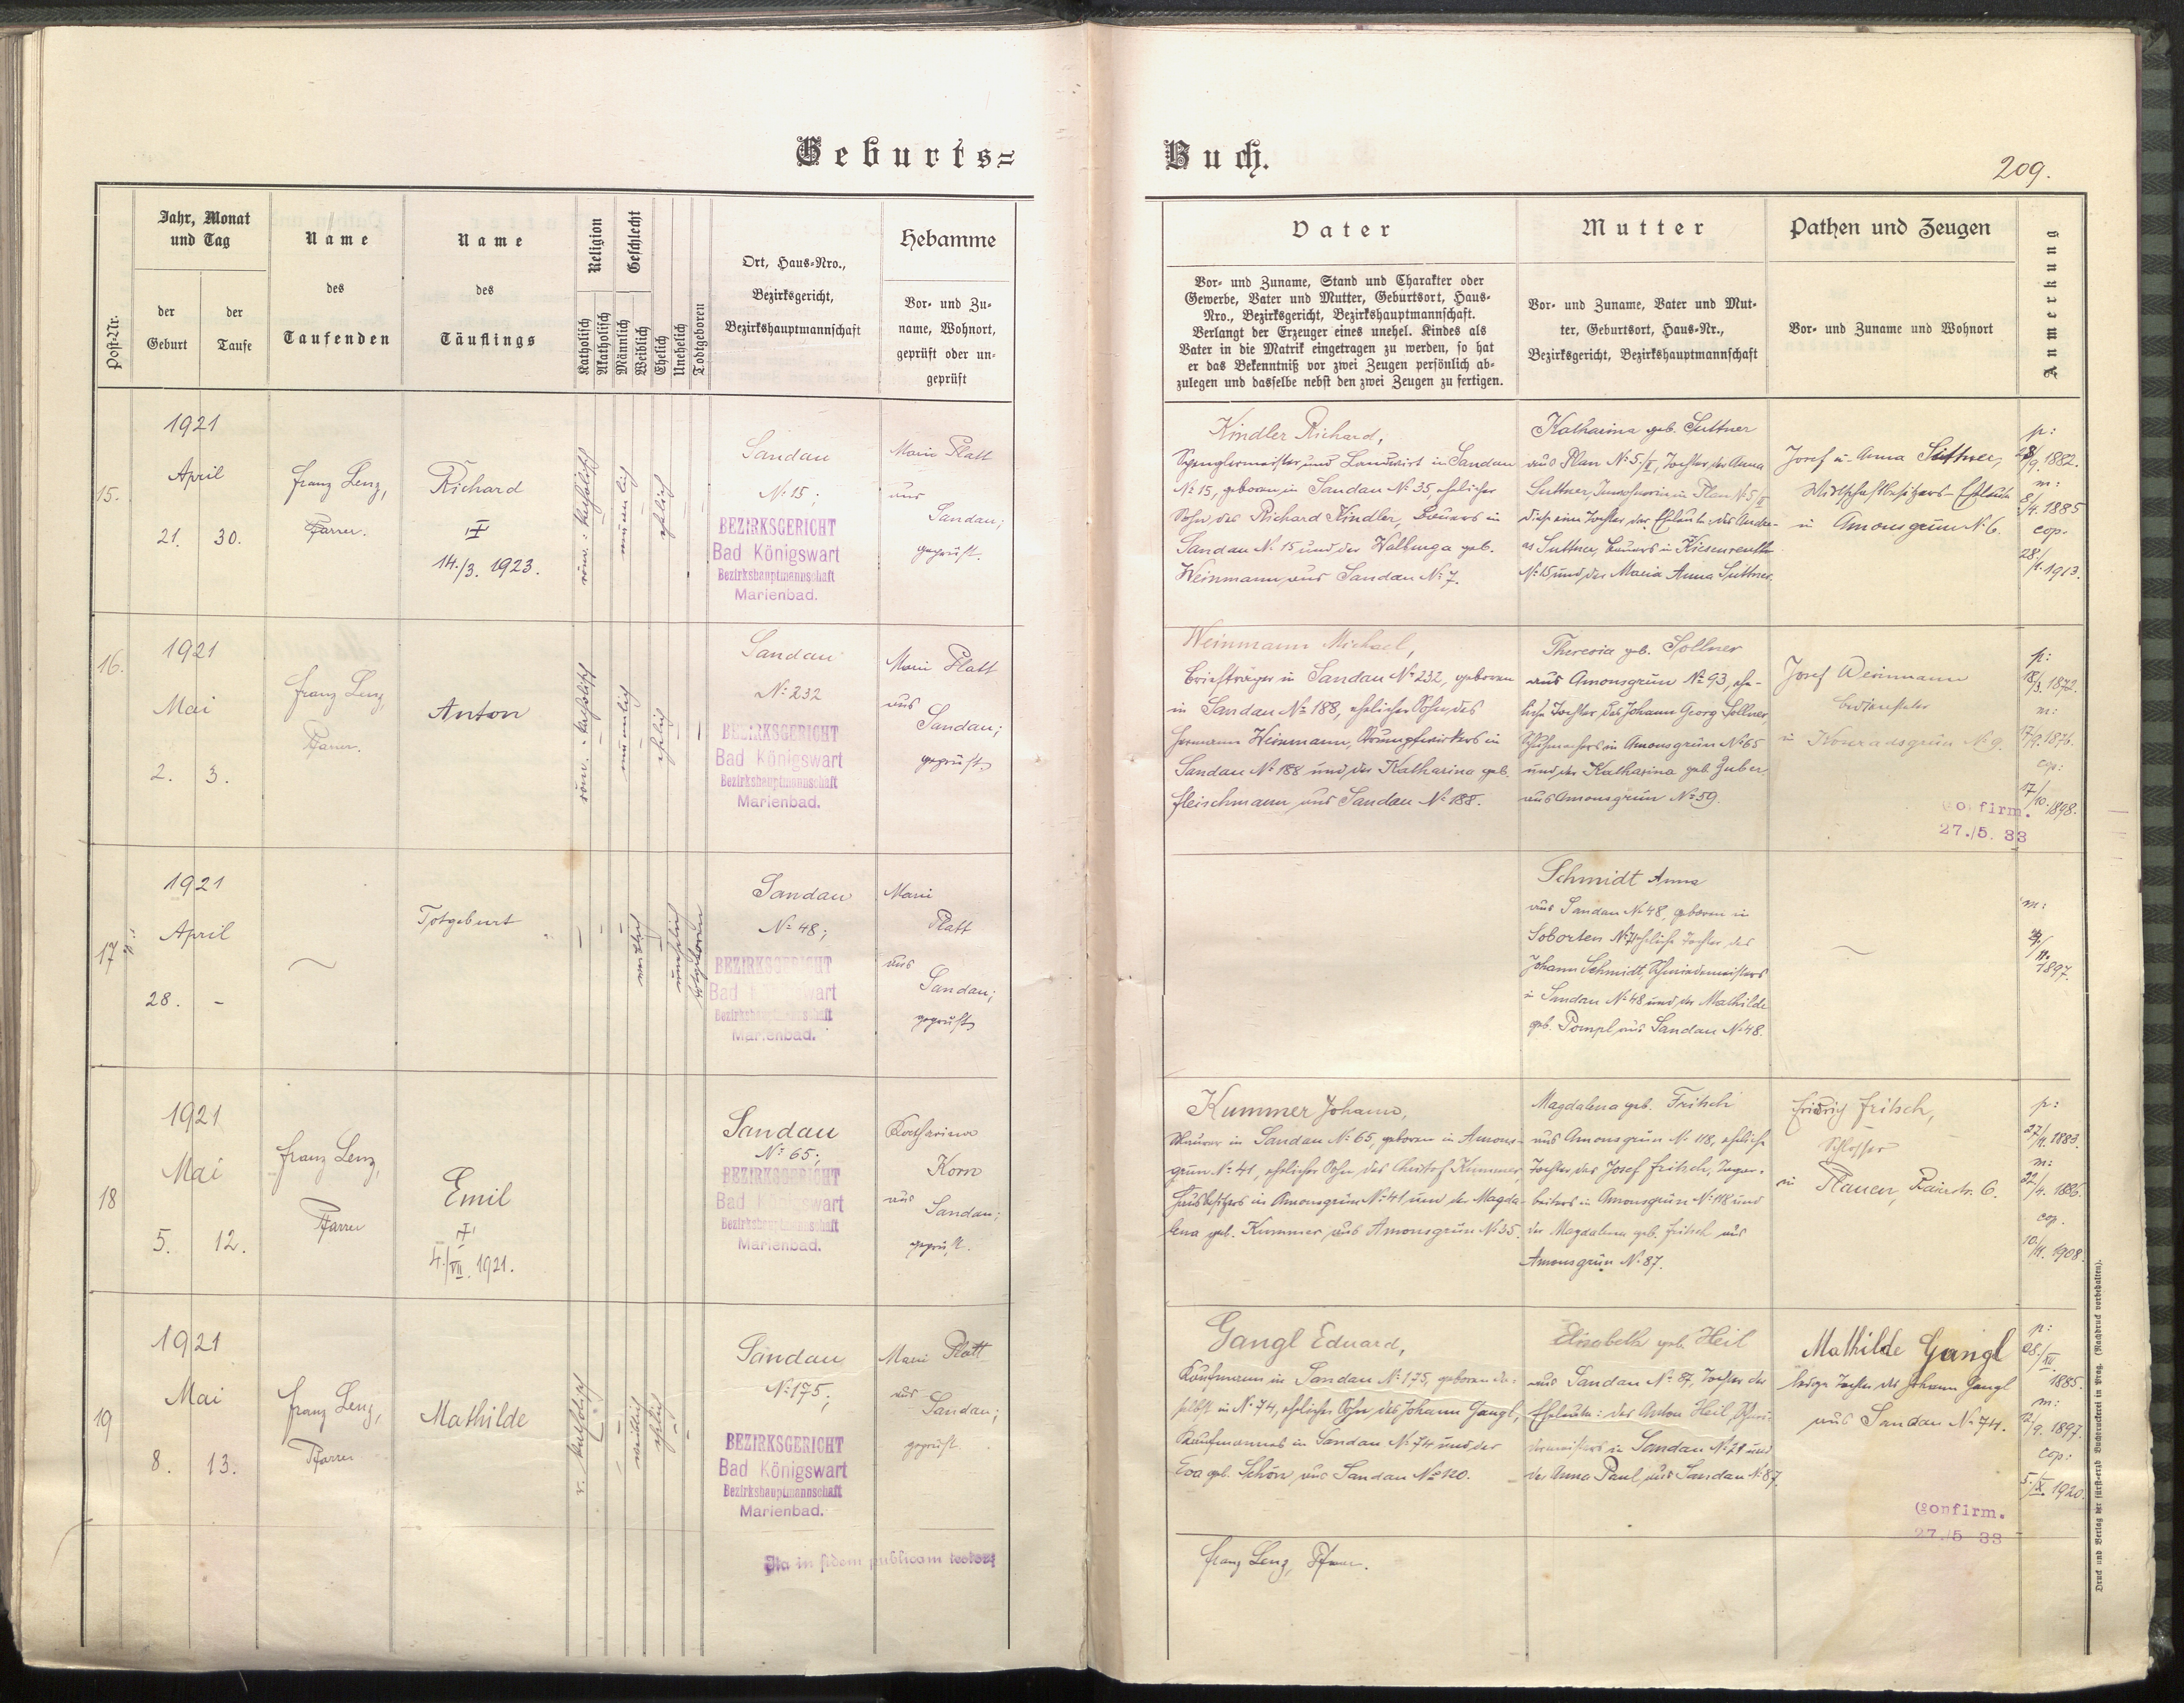 Geburts=Buch.
209.
Post-Nr.
Jahr, Monat
und Tag
der
Geburt
der
Taufe
Name
des
Taufenden
Name
des
Täuflings
Religion
Katholisch
Akatholisch
Geschlecht
Männlich
Weiblich
Ehelich
Unehelich
Todtgeboren
Ort, Haus-Nro.,
Bezirksgericht,
Bezirkshauptmannschaft
Hebamme
Vor- und Zu-
name, Wohnort,
geprüft oder un-
geprüft
Vater
Vor- und Zuname, Stand und Charakter oder
Gewerbe, Vater und Mutter, Geburtsort, Haus-
Nro., Bezirksgericht, Bezirkshauptmannschaft.
Verlangt der Erzeuger eines unehel. Kindes als
Vater in die Matrik eingetragen zu werden, so hat
er das Bekenntniß vor zwei Zeugen persönlich ab-
zulegen und dasselbe nebst den zwei Zeugen zu fertigen.
Mutter
Vor- und Zuname, Vater und Mut-
ter, Geburtsort, Haus-Nr.,
Bezirksgericht, Bezirkshauptmannschaft
Pathen und Zeugen
Vor- und Zuname und Wohnort
Anmerkung
15.
1921
April
21. 30.
Franz Lenz,
Pfarrer.
Richard
14./3. 1923.
röm.: katholisch
männlich
ehelich
Sandau
No 15;
BEZIRKSGERICHT
Bad Königswart
Bezirkshauptmannschaft
Marienbad.
Marie Platt
aus
Sandau;
geprüft.
Kindler Richard,
Spenglermeister und Landwirt in Sandau
No 15, geboren in Sandau No 35, ehelicher
Sohn des Richard Kindler, Bauers in
Sandau No 15 und der Walburga geb.
Weinmann aus Sandau No 7.
Katharina geb. Suttner
aus Plan No 5/II, Tochter der Anna
Suttner, in Plan No 5/II
diese eine Tochter der Eheleute: des Andre-
as Suttner, Bauers in
No 15 und der Maria Anna Suttner.
Josef u. Anna Suttner,
Wirtschaftsbesitzers-Eheleute
in Amonsgrün No 6.
p:
/9. 1882.
m:
8/4. 1885
cop.
28./1. 1913.
16.
1921
Mai
2. 3.
Franz Lenz,
Pfarrer.
Anton
röm.: katholisch
männlich
ehelich
Sandau
No 232
BEZIRKSGERICHT
Bad Königswart
Bezirkshauptmannschaft
Marienbad.
Marie Platt
aus
Sandau;
geprüft
Weinmann Michael,
Briefträger in Sandau No 232, geboren
in Sandau No 188, ehelicher Sohn des
Hermann Weinmann, Strumpfwirkers in
Sandau No 188 und der Katharina geb.
Fleischmann aus Sandau No 188.
Theresia geb. Sollner
aus Amonsgrün No 93, ehe-
liche Tochter des Johann Georg Sollner,
Schuhmachers in Amonsgrün No 65
und der Katharina geb. Zuber
aus Amonsgrün No 59.
Josef Weinmann
Bediensteter
in Konradsgrün No 9.
p:
18/3. 1872.
m:
17/9. 1876.
cop:
17/10. 1898.
Confirm.
27./5. 33
17
1921
April
28. -
Totgeburt
weiblich
unehelich
totgeboren
Sandau
No 48;
BEZIRKSGERICHT
Bad Königswart
Bezirkshauptmannschaft
Marienbad.
Marie
Platt
aus
Sandau;
geprüft
Schmidt Anna
aus Sandau No 48, geboren in
Soborten No 71 eheliche Tochter des
Johann Schmidt, Schmiedemeisters
in Sandau No 48 und der Mathilde
geb. Pompl aus Sandau No 48.
m:
/11. 1897.
18
1921
Mai
5. 12.
Franz Lenz,
Pfarrer
Emil
4./VII. 1921.
Sandau
No 65;
BEZIRKSGERICHT
Bad Königswart
Bezirkshauptmannschaft
Marienbad.
Katharina
Korn
aus
Sandau;
geprüft.
Kummer Johann,
Maurer in Sandau No 65, geboren in Amons-
grün No 41, ehelicher Sohn des Christof Kummer,
Hausbesitzers in Amonsgrün No 41 und der Magda-
lena geb. Kummer aus Amonsgrün No 35.
Magdalena geb. Fritsch
aus Amonsgrün No 118, eheliche
Tochter des Josef Fritsch, Tagar-
beiters in Amonsgrün No 118 und
der Magdalena geb. Fritsch aus
Amonsgrün No 87.
Friedrich Fritsch,
Schlosser
in Plauen, 6.
p:
27/11. 1883.
m:
22/4. 1886.
cop.
10/11. 1908.
19
1921
Mai
8. 13.
Franz Lenz,
Pfarrer
Mathilde
r. katholisch
weiblich
ehelich
Sandau
No 175;
BEZIRKSGERICHT
Bad Königswart
Bezirkshauptmannschaft
Marienbad.
Marie Platt
aus
Sandau;
geprüft
Gangl Eduard,
Kaufmann in Sandau No 175, geboren da-
selbst in No 74, ehelicher Sohn des Johann Gangl,
Kaufmannes in Sandau No 74 und der
Eva geb. Schön aus Sandau No 120.
Elisabeth geb. Heil
aus Sandau No 87, Tochter der
Eheleute: des Anton Heil, Schnei-
dermeisters in Sandau No 28 und
der Anna Paul aus Sandau No 87.
Mathilde Gangl
ledige Tochter des Johann Gangl
aus Sandau No 74.
p:
28./XII. 1885.
m:
2/9. 1897.
cop:
5./X. 1920.
Confirm.
27./5 33
Ita in fidem publicam testor:
Franz Lenz, Pfarrer.
Druck und Verlag der fürst-erzb. Buchdruckerei in Prag. (Nachdruck vorbehalten).